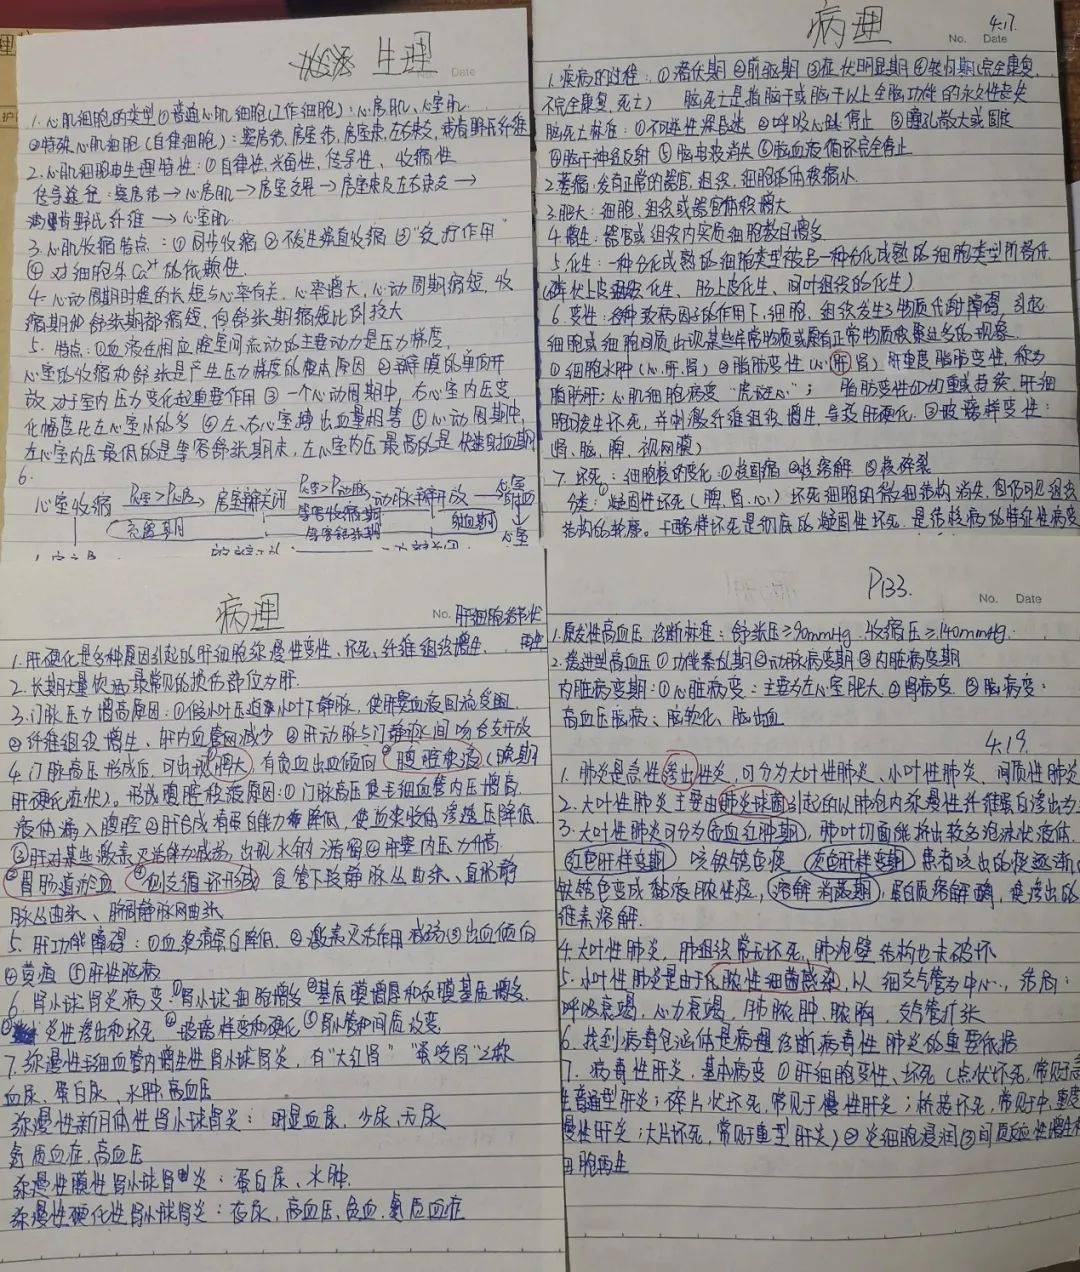 生理
No.
Date
1.心肌细胞的类型①普通心肌细胞(工作细胞):心房肌、心室肌
②特殊心肌细胞(自律细胞):窦房结、房室结、房室束、左右束支、浦肯野氏纤维
2.心肌细胞电生理特性:①自律性、兴奋性、传导性、收缩性
传导途径:窦房结→心房肌→房室交界→房室束及左右束支→
浦肯野氏纤维→心室肌
3.心肌收缩特点:①同步收缩②不发生强直收缩③"绞拧作用"
④对细胞外Ca²⁺的依赖性.
4.心动周期时程的长短与心率有关.心率增大,心动周期缩短,收
缩期和舒张期都缩短,但舒张期缩短比例较大
5.特点:①血液在相应腔室间流动的主要动力是压力梯度,
心室的收缩和舒张是产生压力梯度的根本原因②瓣膜的单向开
放对于室内压力变化起重要作用③一个心动周期中,右心室内压变
化幅度比左心室小的多④左、右心室搏出血量相等⑤心动周期中,
左心室内压最低的是等容舒张期末,左心室内压最高的是快速射血期
6.
心室收缩 P室>P房 房室瓣关闭 P室>P动脉 动脉瓣开放→心室射血
充盈期 等容收缩期 射血期
等容舒张期 心室
病理
4.17.
No. Date
1.疾病的过程:①潜伏期②前驱期③症状明显期④转归期(完全康复、
不完全康复、死亡) 脑死亡是指脑干或脑干以上全脑功能的永久性丧失
脑死亡标准:①不可逆性深昏迷②呼吸心跳停止③瞳孔散大或固定
④脑干神经反射⑤脑电波消失⑥脑血液循环完全停止
2.萎缩:发育正常的器官、组织、细胞的体积缩小.
3.肥大:细胞、组织或器官体积增大
4.增生:器官或组织内实质细胞数目增多
5.化生:一种分化成熟的细胞类型被另一种分化成熟的细胞类型所替代.
(鳞状上皮组织化生、肠上皮化生、间叶组织的化生)
6.变性:各种致病因子的作用下,细胞、组织发生了物质代谢障碍,引起
细胞或细胞间质出现某些异常物质或原有正常物质积聚过多的现象.
①细胞水肿(心.肝.肾)②脂肪变性(心.肝.肾)肝重度脂肪变性,称为
脂肪肝;心肌细胞病变"虎斑心";脂肪变性的切重或持续,肝细
胞可发生坏死,并刺激纤维组织增生,导致肝硬化.③玻璃样变性:
(肾、脑、脾、视网膜)
7.坏死:细胞核的变化:①核固缩②核溶解③核碎裂
分类:①凝固性坏死(脾、肾、心)坏死细胞的微细结构消失,但仍可见组织
结构的轮廓。干酪样坏死是彻底的凝固性坏死.是结核病的特征性病变
病理
No. 肝细胞结节状
再生
1.肝硬化是多种原因引起的肝细胞弥漫性变性、坏死、纤维组织增生、
2.长期大量饮酒最常见的损伤部位为肝.
3.门脉压力增高原因:①假小叶压迫小叶下静脉,使肝窦血液回流受阻.
②纤维组织增生、肝内血管网减少③肝动脉与门静脉间吻合支开放
4.门脉高压形成后,可出现脾肿大,有贫血出血倾向 腹腔积液(晚期
肝硬化症状)。形成腹腔积液原因:①门脉高压使毛细血管内压增高,
液体漏入腹腔②肝合成清蛋白能力降低,使血浆胶体渗透压降低.
③肝对某些激素灭活能力减弱,出现水钠潴留④肝窦内压升高.
③胃肠道淤血④侧支循环形成 食管下段静脉丛曲张、直肠静
脉丛曲张、脐周静脉网曲张
5.肝功能障碍:①血浆清蛋白降低.②激素灭活作用减弱③出血倾向
④黄疸⑤肝性脑病
6.肾小球肾炎病变:①肾小球细胞增多②基底膜增厚和系膜基质增多.
③炎性渗出和坏死④玻璃样变和硬化⑤肾小管和间质改变.
7.弥漫性毛细血管内增生性肾小球肾炎,有"大红肾""蚤咬肾"之称
血尿、蛋白尿、水肿.高血压
弥漫性新月体性肾小球肾炎:明显血尿、少尿、无尿
氮质血症.高血压
弥漫性膜性肾小球肾炎:蛋白尿、水肿.
弥漫性硬化性肾小球肾炎:夜尿、高血压、贫血.氮质血症
P133.
No. Date
1.原发性高血压.诊断标准:舒张压≥90mmHg.收缩压≥140mmHg.
2.缓进型高血压①功能紊乱期②动脉病变期③内脏病变期
内脏病变期:①心脏病变:主要为左心室肥大.②肾病变.③脑病变:
高血压脑病、脑软化、脑出血
4.19.
1.肺炎是急性渗出性炎,可分为大叶性肺炎、小叶性肺炎、间质性肺炎
2.大叶性肺炎主要由肺炎球菌引起的以肺泡内弥漫性纤维蛋白渗出为主
3.大叶性肺炎可分为充血水肿期,肺叶切面能挤出较多泡沫状液体.
红色肝样变期 咳铁锈色痰、灰色肝样变期 患者咳出的痰逐渐由
铁锈色变成黏液脓性痰,溶解消散期,蛋白质溶解酶,使渗出的
维素溶解.
4.大叶性肺炎,肺组织常无坏死,肺泡壁结构也未破坏
5.小叶性肺炎是由于化脓性细菌感染,以细支气管为中心,结局:
呼吸衰竭、心力衰竭、肺脓肿、脓胸、支气管扩张
6.找到病毒包涵体是病理诊断病毒性肺炎的重要依据
7.病毒性肝炎.基本病变①肝细胞变性、坏死(点状坏死,常见于急
性普通型肝炎;碎片状坏死,常见于慢性肝炎;桥接坏死,常见于中.重度
慢性肝炎;大片坏死,常见于重型肝炎)②炎细胞浸润③间质反应性增生和
胞再生